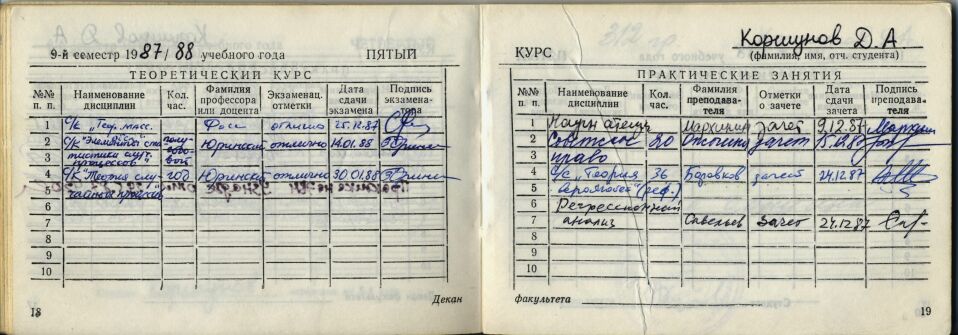 9-й семестр 1987/88 учебного года ПЯТЫЙ
ТЕОРЕТИЧЕСКИЙ КУРС
№№ п. п. Наименование дисциплин Кол. час. Фамилия профессора или доцента Экзаменац. отметки Дата сдачи экзамена Подпись экзамена-тора
1 С/к "Теор. масс. Фосс отлично 25.12.87
2 С/к "Элементы ста полу- Юринский отлично 14.01.88
3 тистики случ. годо-
процессов" вой
4 С/к "Теория слу- год Юринский отлично 30.01.88
5 чайных процессов
6
7
8
9
10
Декан
18
КУРС Коршунов Д. А
(фамилия, имя, отч. студента)
ПРАКТИЧЕСКИЕ ЗАНЯТИЯ
№№ п. п. Наименование дисциплин Кол. час. Фамилия преподава-теля Отметки о зачете Дата сдачи зачета Подпись преподава-теля
1 Научн атеизм зачет 9.12.87
2 Советское 20 зачет 15.12.87
3 право
4 С/с. Теория 36 Боровков зачет 24.12.87
5 вероятностей (реф.)
6 Регрессионный
7 анализ Савельев зачет 24.12.87
8
9
10
факультета
19